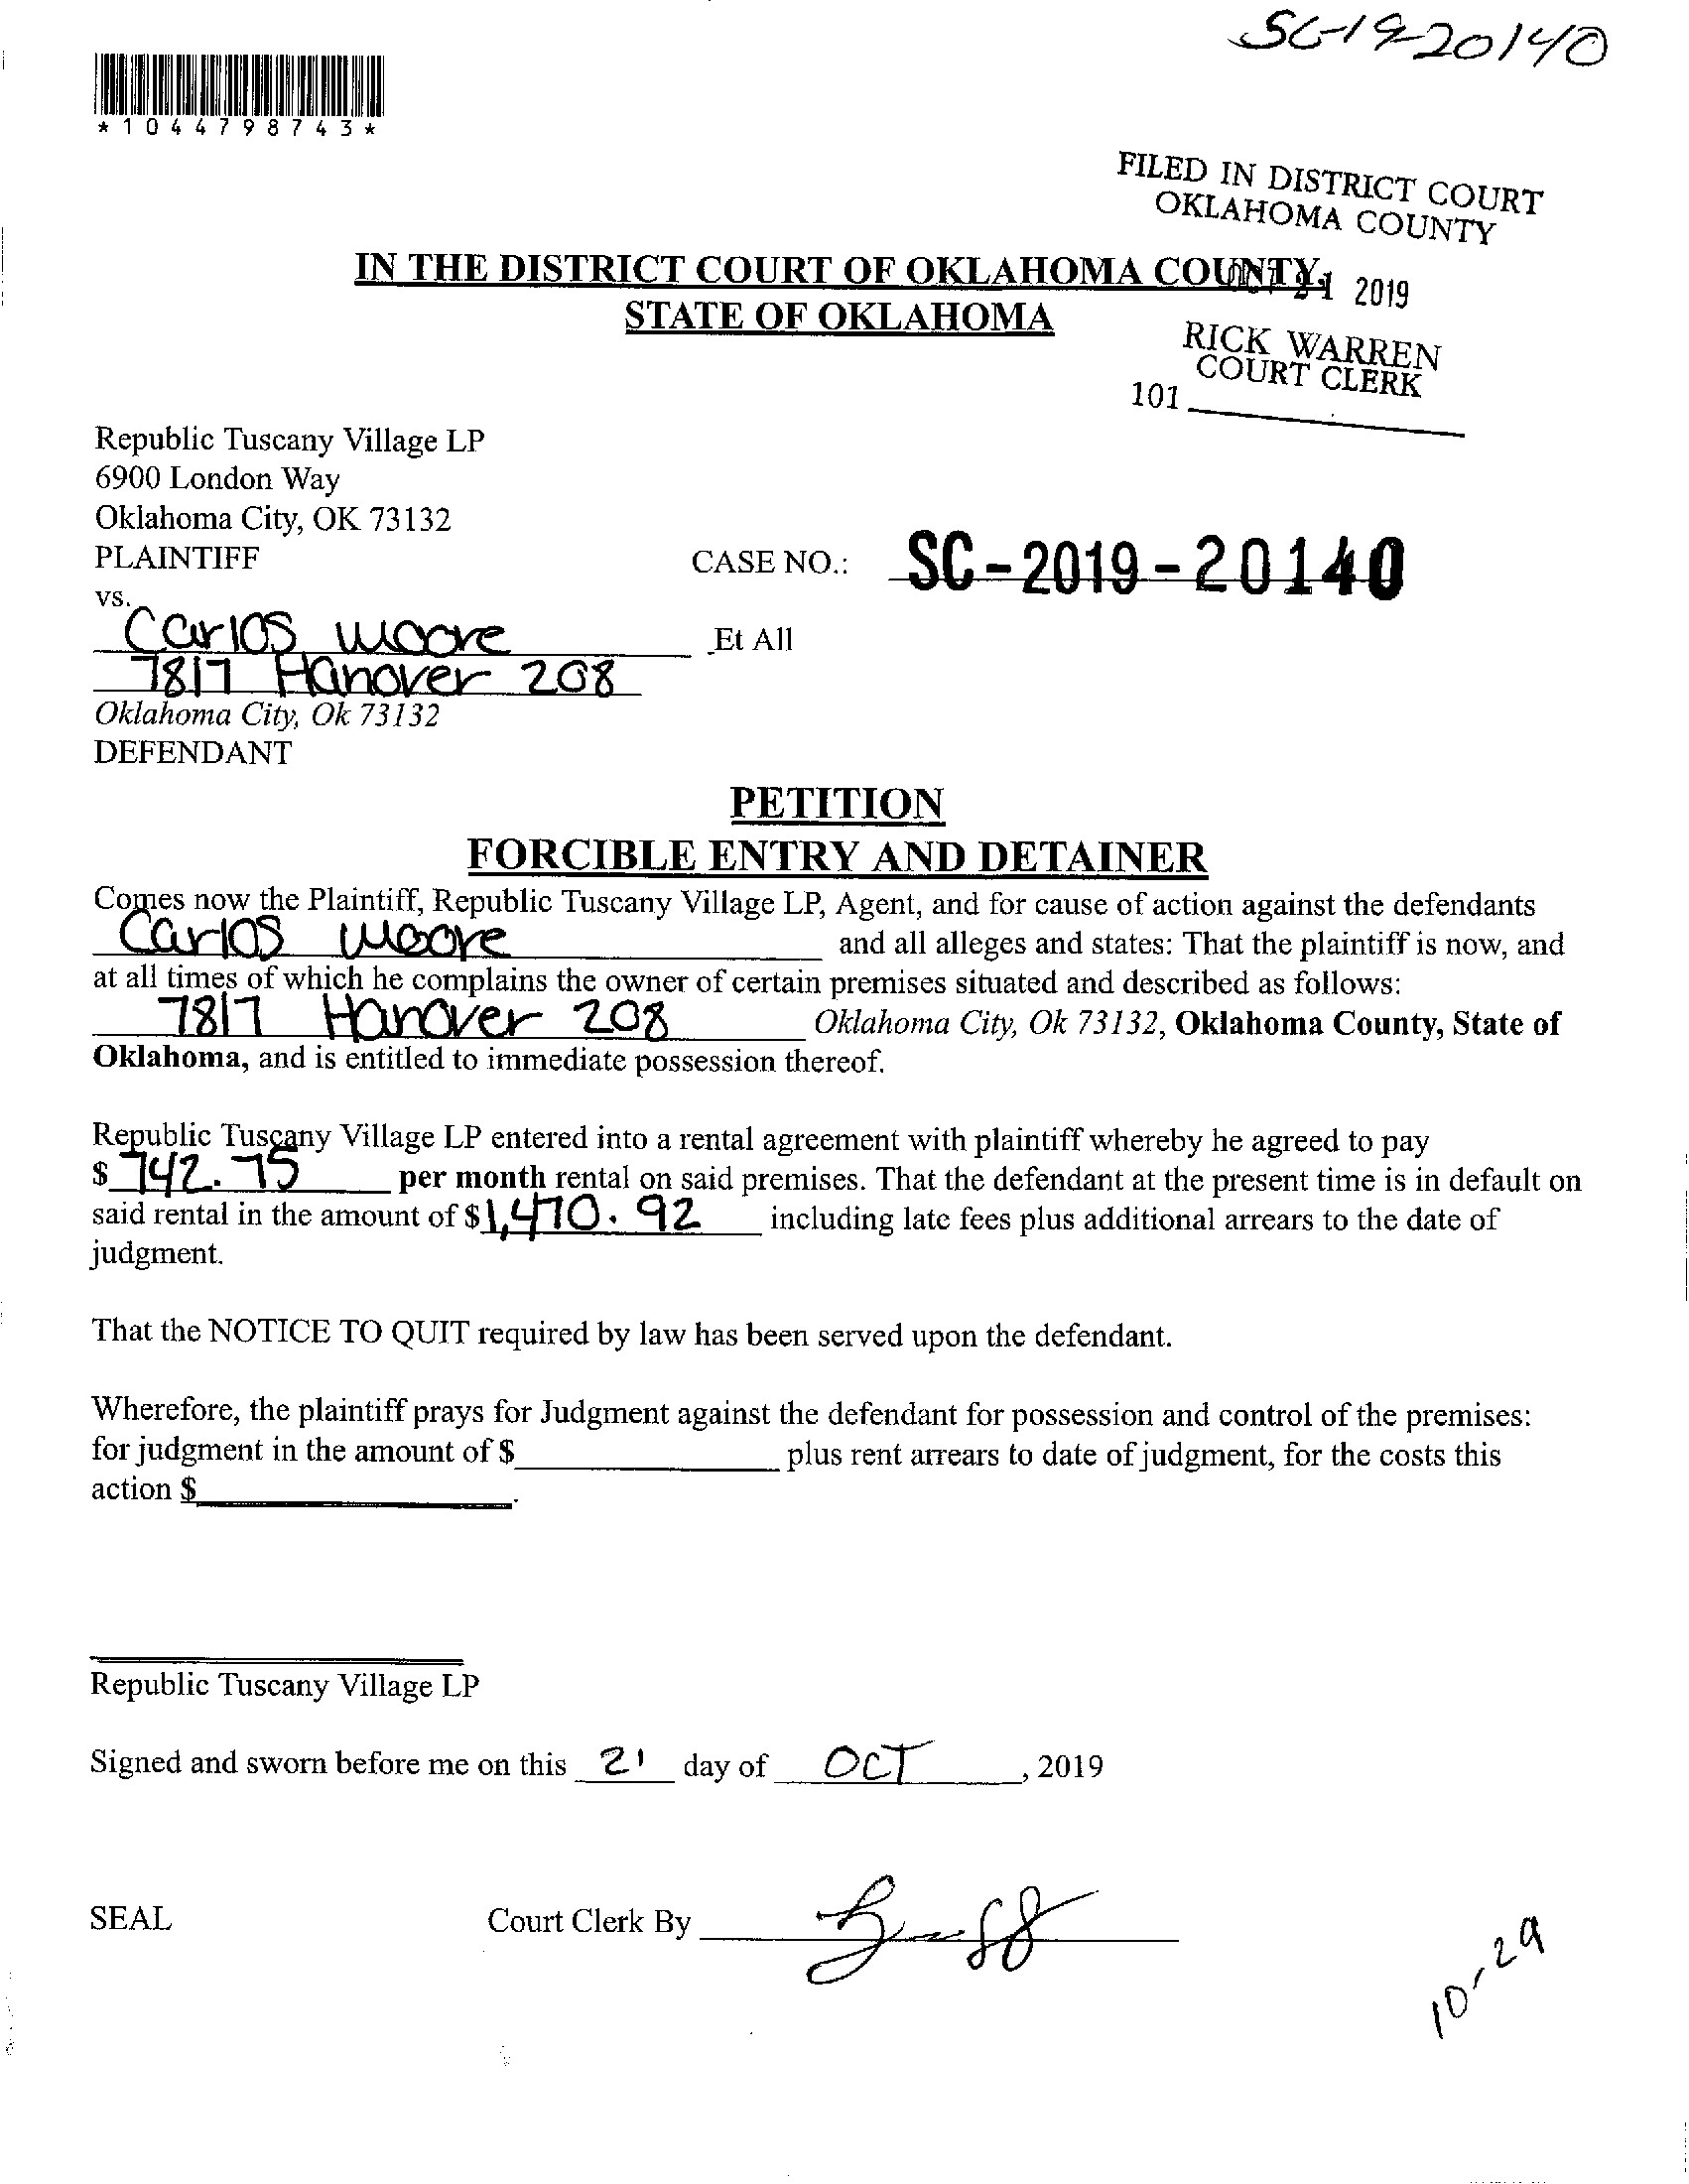 SC-19-20140
*1044798743*
FILED IN DISTRICT COURT
OKLAHOMA COUNTY
IN THE DISTRICT COURT OF OKLAHOMA COUNTY,
STATE OF OKLAHOMA
OCT 21 2019
RICK WARREN
COURT CLERK
101
Republic Tuscany Village LP
6900 London Way
Oklahoma City, OK 73132
PLAINTIFF
CASE NO.: SC-2019-20140
vs.
Carlos Moore Et All
7817 Hanover 208
Oklahoma City, Ok 73132
DEFENDANT
PETITION
FORCIBLE ENTRY AND DETAINER
Comes now the Plaintiff, Republic Tuscany Village LP, Agent, and for cause of action against the defendants
Carlos Moore and all alleges and states: That the plaintiff is now, and
at all times of which he complains the owner of certain premises situated and described as follows:
7817 Hanover 208 Oklahoma City, Ok 73132, Oklahoma County, State of
Oklahoma, and is entitled to immediate possession thereof.
Republic Tuscany Village LP entered into a rental agreement with plaintiff whereby he agreed to pay
$ 742.75 per month rental on said premises. That the defendant at the present time is in default on
said rental in the amount of $1,470.92 including late fees plus additional arrears to the date of
judgment.
That the NOTICE TO QUIT required by law has been served upon the defendant.
Wherefore, the plaintiff prays for Judgment against the defendant for possession and control of the premises:
for judgment in the amount of $ plus rent arrears to date of judgment, for the costs this
action $ .
Republic Tuscany Village LP
Signed and sworn before me on this 21 day of OCT, 2019
SEAL Court Clerk By
10-29